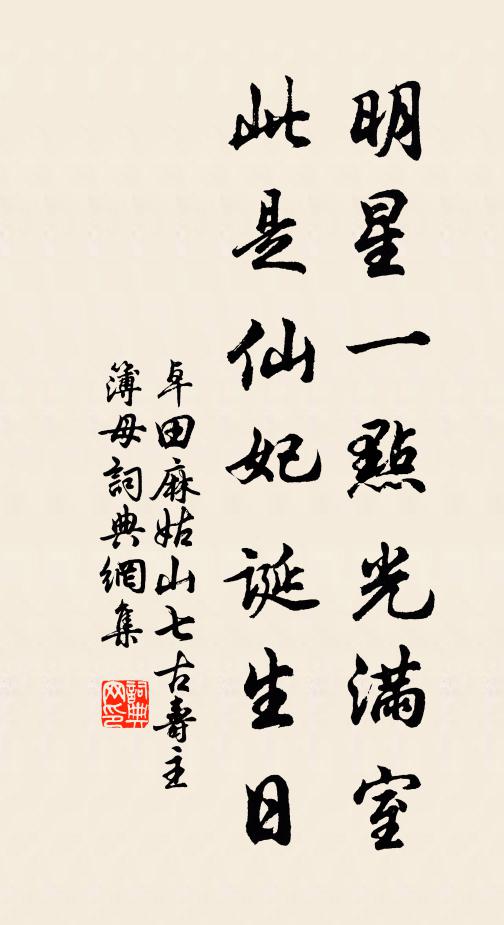 明星一點光滿室
此是仙妃誕生日
卓田麻姑山七古壽主
簿母詞典網集
詞典網印